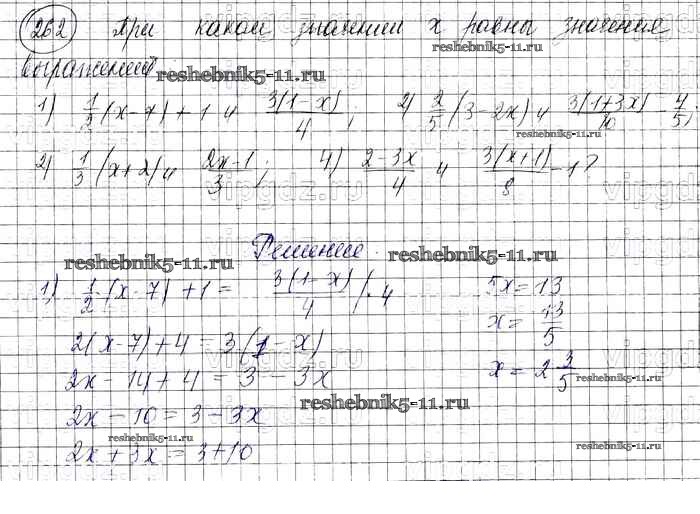 262 При каком значении x равны значения
reshebnik5-11.ru
выражений
reshebnik5-11.ru
1) 1/2 (x-7) + 1 и 3(1-x)/4 ; 2) 2/5 (3-2x) и 3(1+3x)/10 - 4/5 ;
reshebnik5-11.ru
2) 1/3 (x+2) и 2x-1/3 ; 4) 2-3x/4 и 3(x+1)/8 - 1?
vipgdz.ru
Решение.
reshebnik5-11.ru reshebnik5-11.ru
1) 1/2 · (x-7) + 1 = 3(1-x)/4 | · 4 5x = 13
2(x-7) + 4 = 3(1-x) x = 13/5
2x - 14 + 4 = 3 - 3x x = 2 3/5
reshebnik5-11.ru
reshebnik5-11.ru
2x - 10 = 3 - 3x
reshebnik5-11.ru reshebnik5-11.ru
2x + 3x = 3 + 10